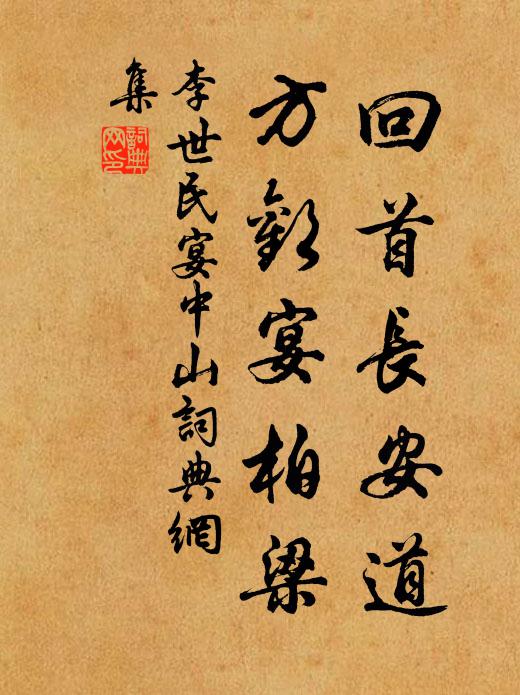 回首長安道
方歡宴柏梁
李世民宴中山詞典網
集
詞典
网印